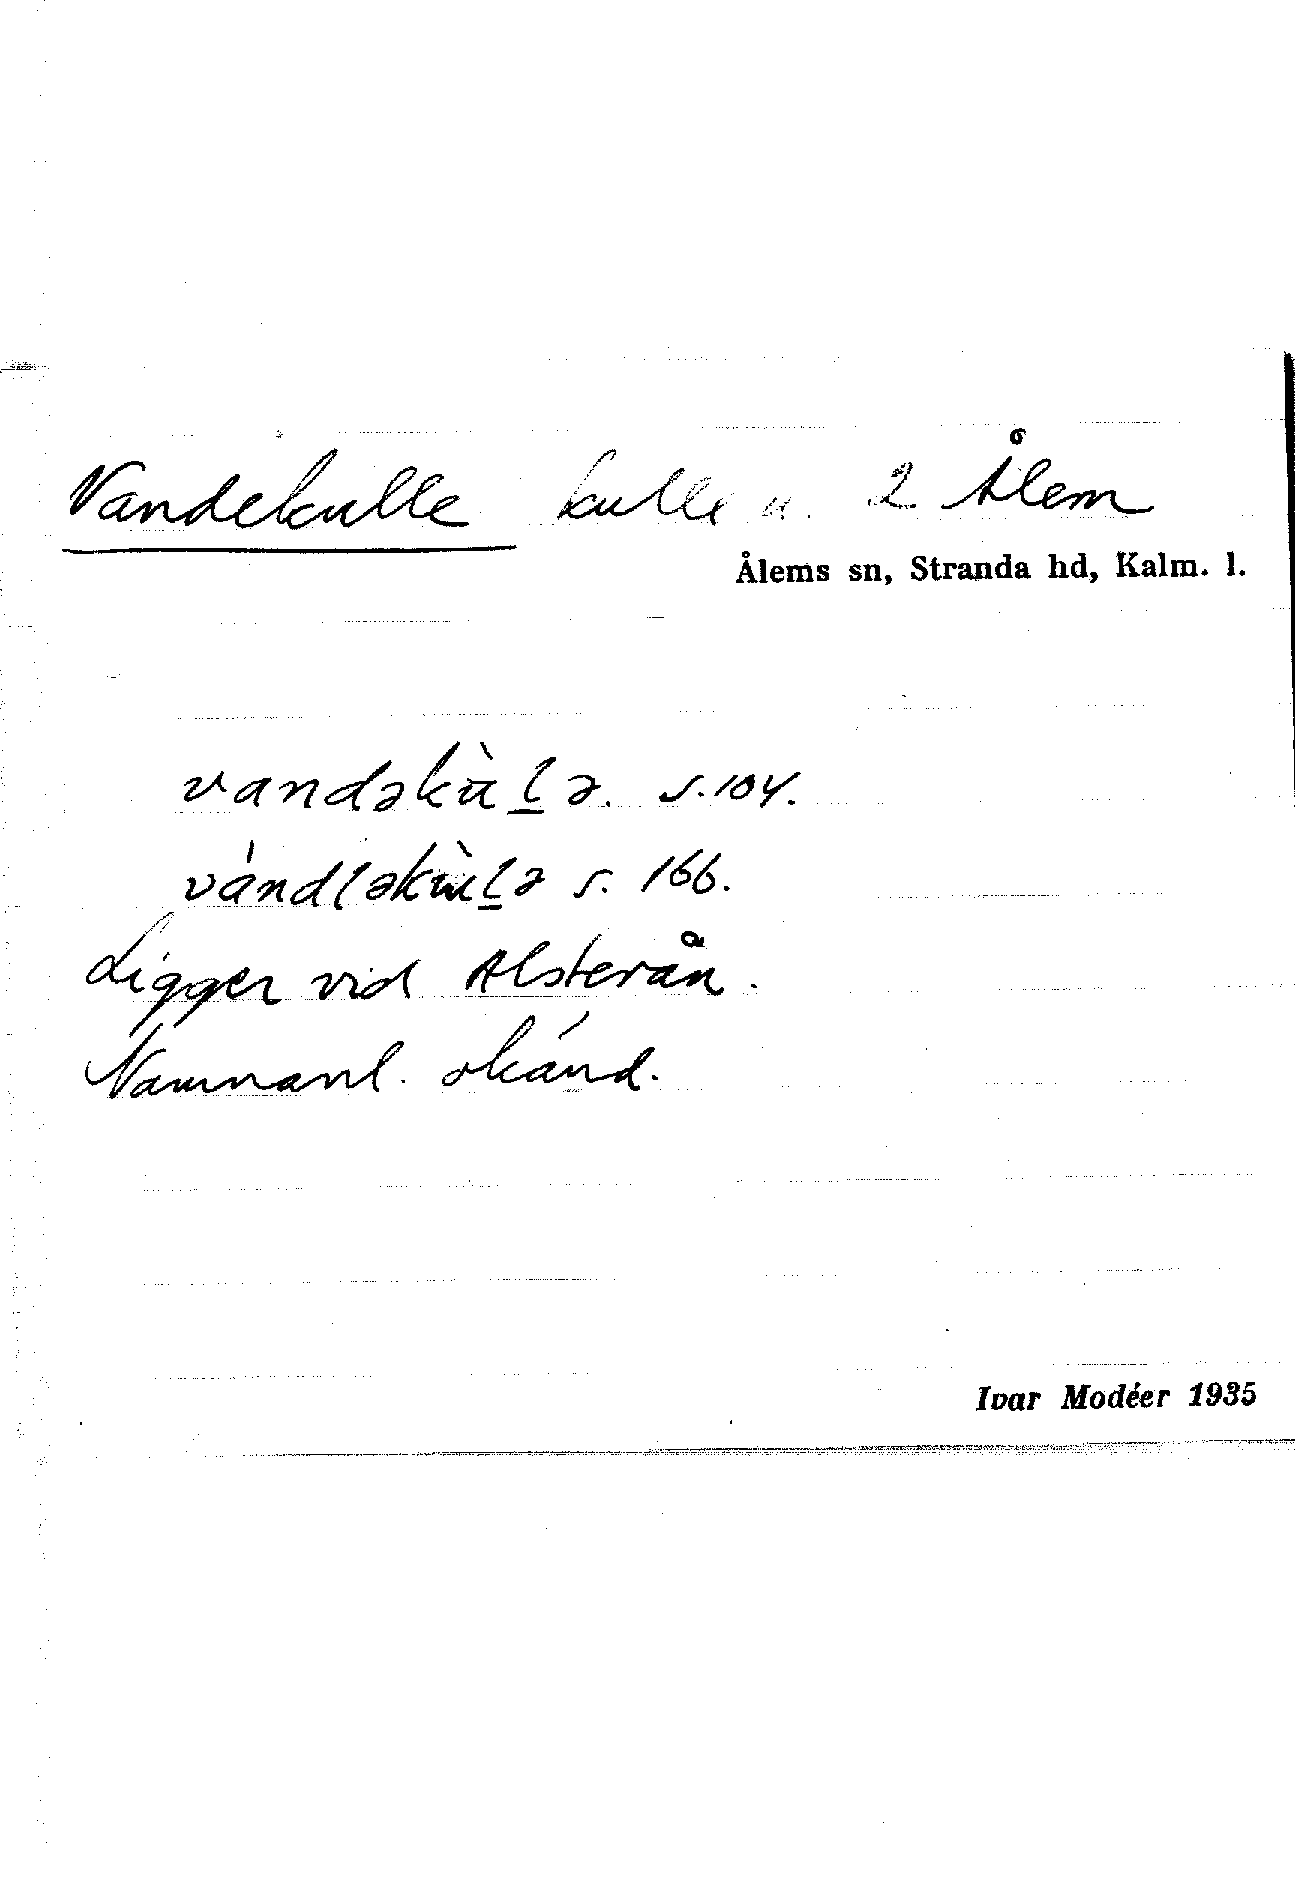 Vandekulle kulle u. 2 Ålem
Ålems sn, Stranda hd, Kalm. l.
vandəkùlə. s. 104.
vándləkùlə s. 166.
Ligger vid Alsterån.
Namnanl. okánd.
Ivar Modéer 1935